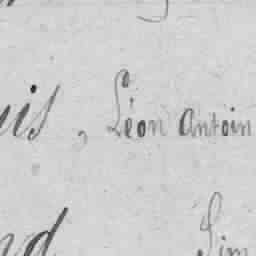 uis, Léon Antoin
nd Sim